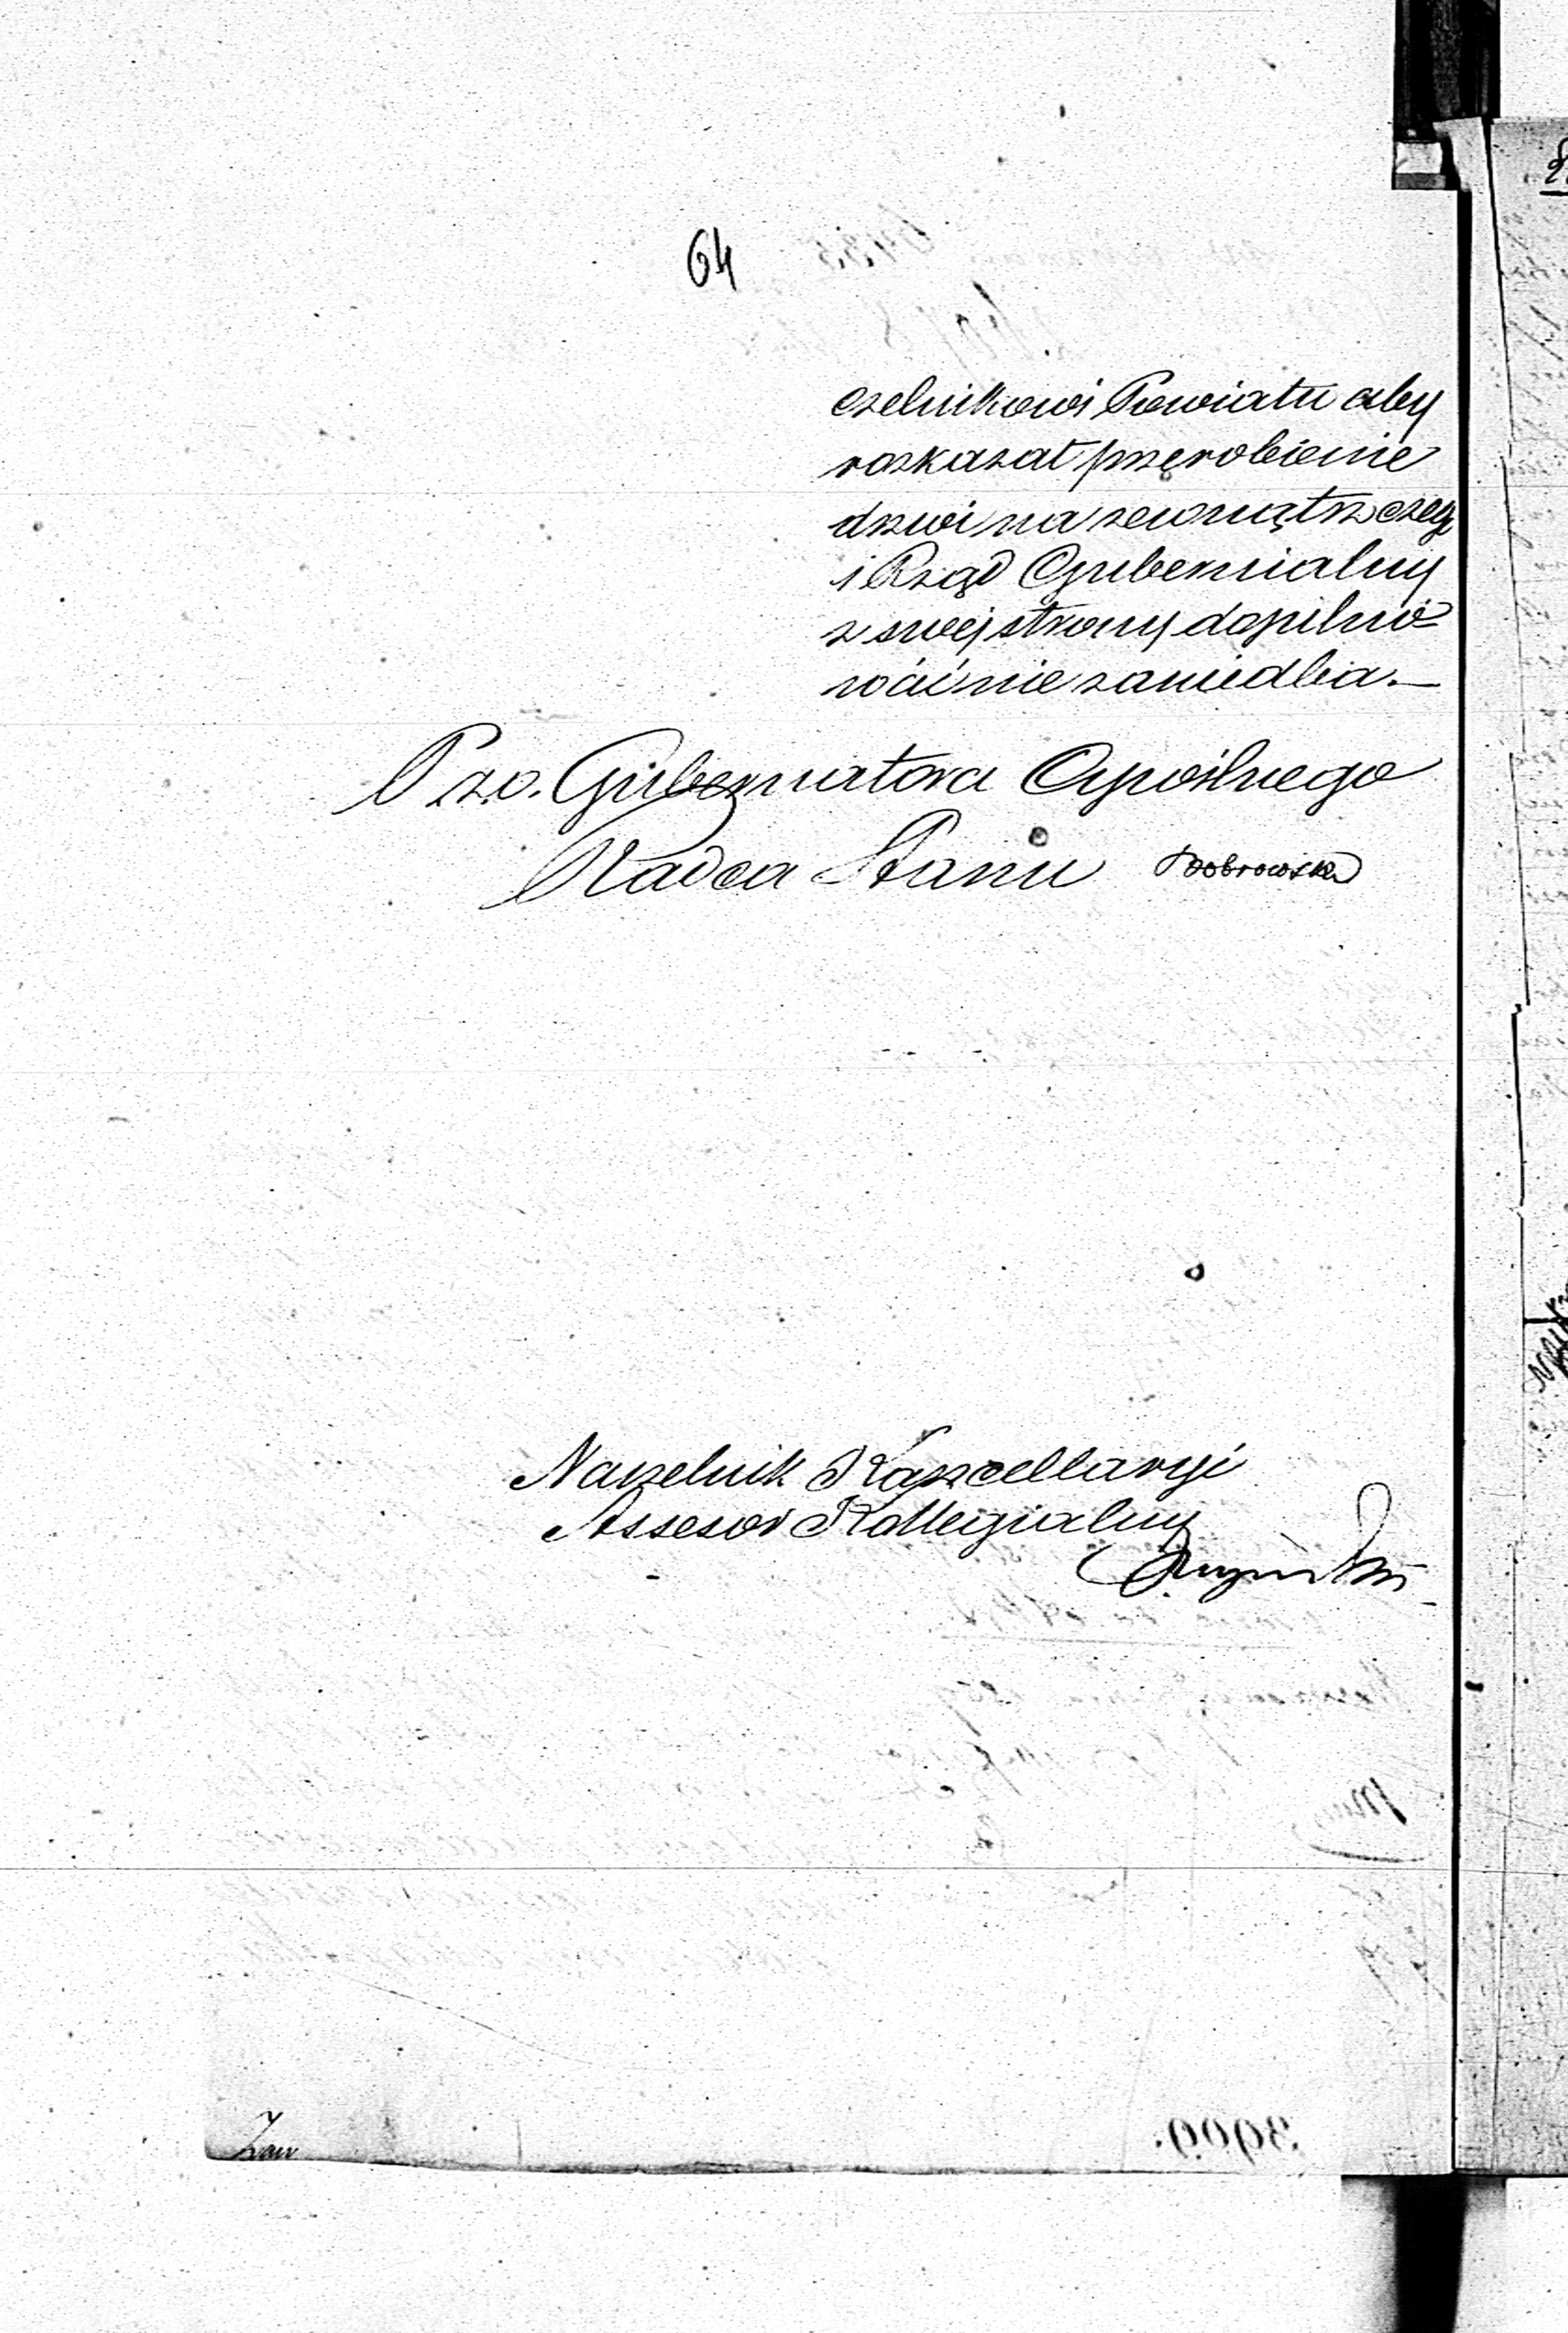 64
czelnikowi Powiatu aby
roskazał przerobienie
drzwi na zewnątrz czego
i Rząd Gubernialny
z swej strony dopilno=
wać nie zaniedba.—
P.z.o. Gubernatora Cywilnego
Radca Stanu Dobrowolski
Naczelnik Kancellaryi
Assesor Kollegialny